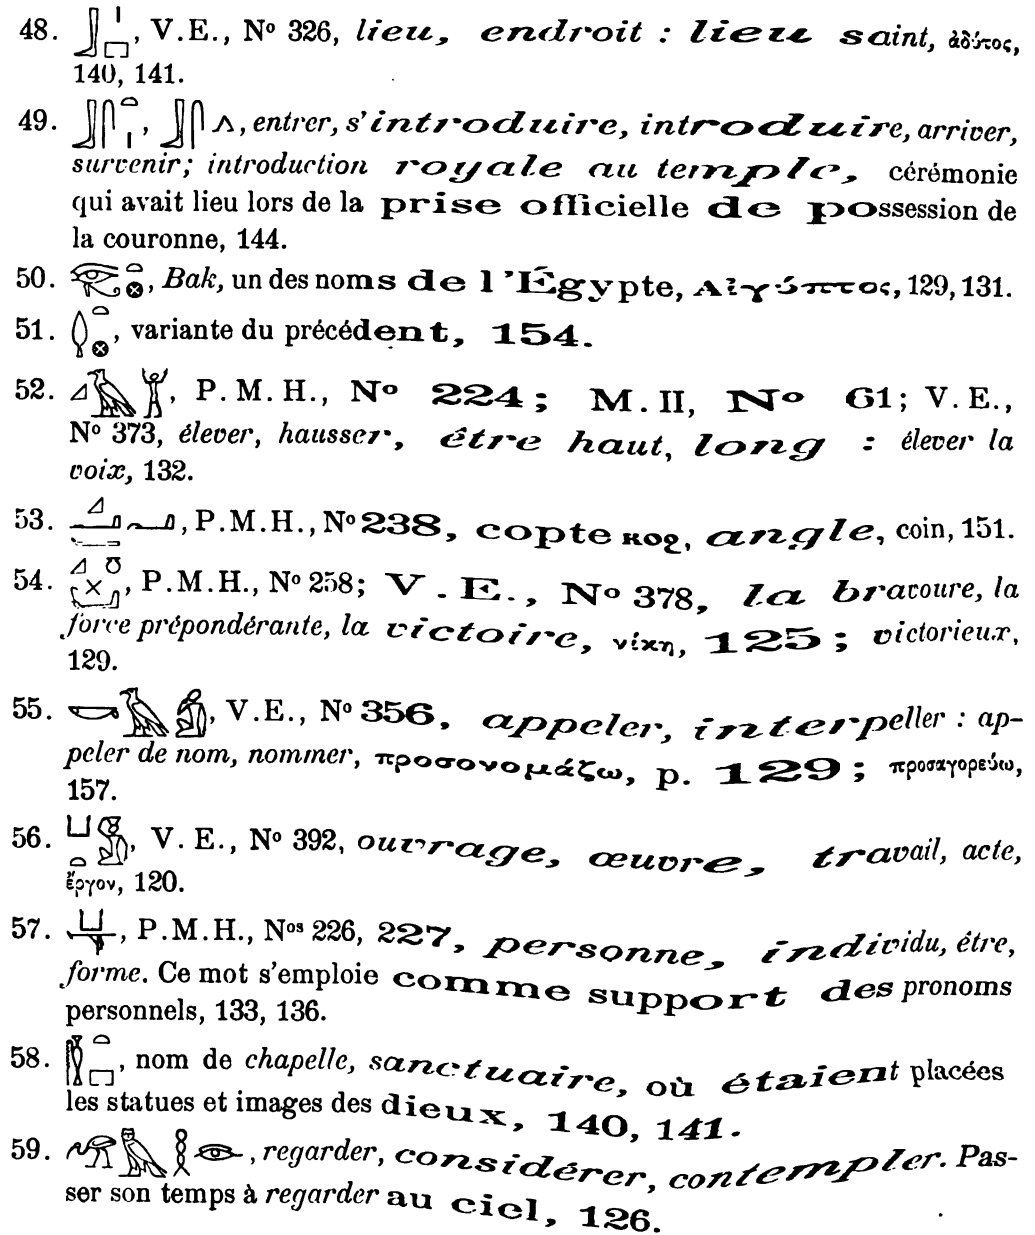 48. 𓃀𓏤𓉐, V.E., Nº 326, lieu, endroit : lieu saint, ἀδύτος,
140, 141.
49. 𓃀𓋴𓏏𓏤, 𓃀𓋴𓂻, entrer, s'introduire, introduire, arriver,
survenir; introduction royale au temple, cérémonie
qui avait lieu lors de la prise officielle de possession de
la couronne, 144.
50. 𓂀𓏏𓊖, Bak, un des noms de l'Égypte, Αἰγύπτος, 129, 131.
51. 𓏏𓊖, variante du précédent, 154.
52. 𓈎𓄿𓀠, P.M.H., Nº 224; M.II, Nº 61; V.E.,
Nº 373, élever, hausser, être haut, long : élever la
voix, 132.
53. 𓈎𓂝𓂝, P.M.H., Nº 238, copte ⲕⲟϩ, angle, coin, 151.
54. 𓈎𓏴𓂝, P.M.H., Nº 258; V.E., Nº 378, la bravoure, la
force prépondérante, la victoire, νίκη, 125; victorieux,
129.
55. 𓎡𓄿𓀁, V.E., Nº 356, appeler, interpeller : ap-
peler de nom, nommer, προσονομάζω, p. 129; προσαγορεύω,
157.
56. 𓂓𓏏𓀋, V.E., Nº 392, ouvrage, œuvre, travail, acte,
ἔργον, 120.
57. 𓂓, P.M.H., Nos 226, 227, personne, individu, être,
forme. Ce mot s'emploie comme support des pronoms
personnels, 133, 136.
58. 𓏏𓉐, nom de chapelle, sanctuaire, où étaient placées
les statues et images des dieux, 140, 141.
59. 𓅠𓅓𓎛𓁹, regarder, considérer, contempler. Pas-
ser son temps à regarder au ciel, 126.